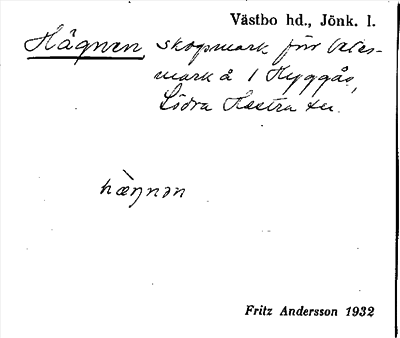 Västbo hd., Jönk. l.
Hägnen skogsmark för betes-
mark å 1 Hyggås,
Södra Hestra sn.
hæ̀ŋnən
Fritz Andersson 1932